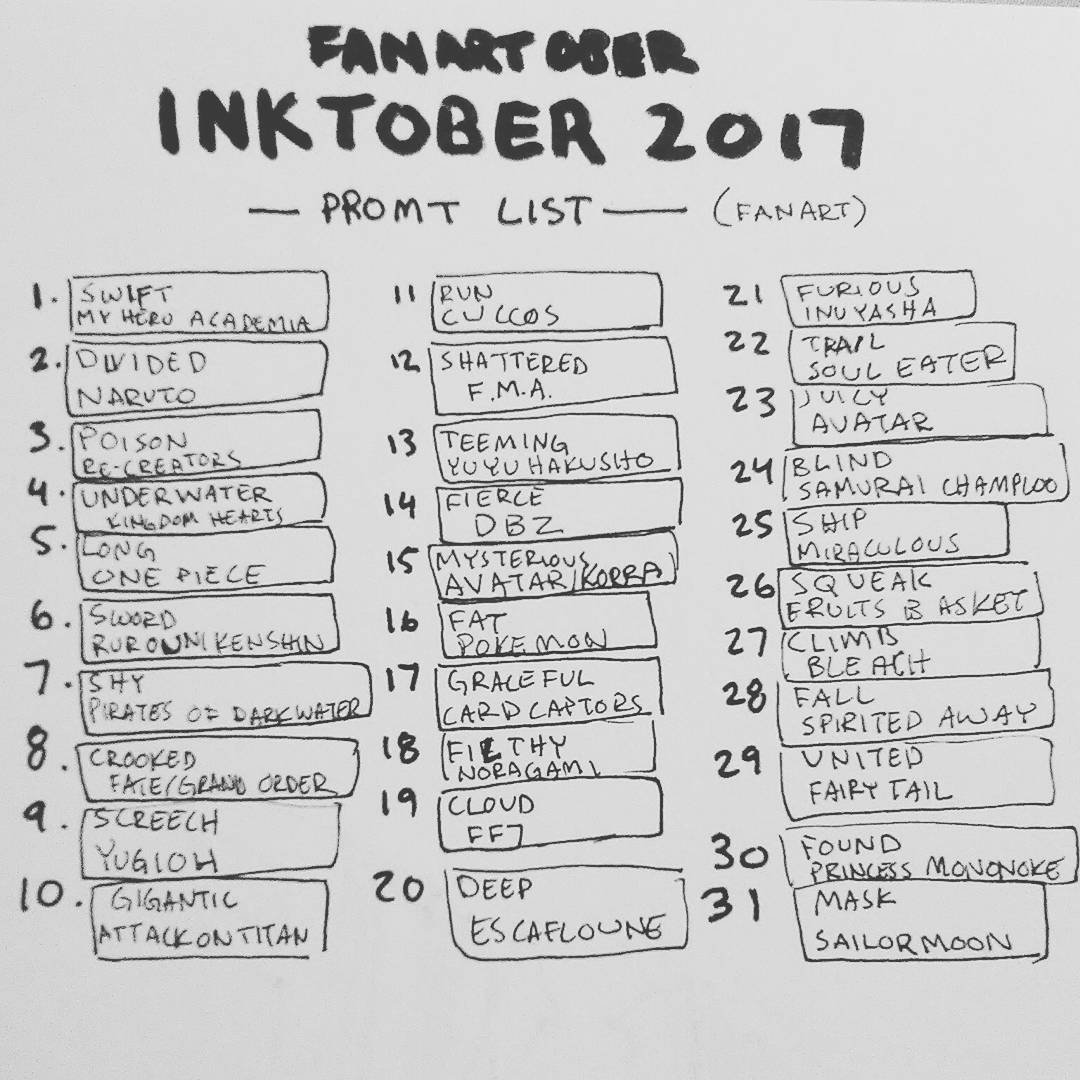 FANARTOBER
INKTOBER 2017
— PROMT LIST — (FANART)
1. SWIFT
MY HERO ACADEMIA
2. DIVIDED
NARUTO
3. POISON
RE-CREATORS
4. UNDERWATER
KINGDOM HEARTS
5. LONG
ONE PIECE
6. SWORD
RUROUNNI KENSHIN
7. SHY
PIRATES OF DARKWATER
8. CROOKED
FATE/GRAND ORDER
9. SCREECH
YUGIOH
10. GIGANTIC
ATTACK ON TITAN
11 RUN
CUCCOS
12 SHATTERED
F.M.A.
13 TEEMING
YUYU HAKUSHO
14 FIERCE
DBZ
15 MYSTERIOUS
AVATAR/KORRA
16 FAT
POKEMON
17 GRACEFUL
CARD CAPTORS
18 FILTHY
NORAGAMI
19 CLOUD
FF7
20 DEEP
ESCAFLOUNE
21 FURIOUS
INUYASHA
22 TRAIL
SOUL EATER
23 JUICY
AVATAR
24 BLIND
SAMURAI CHAMPLOO
25 SHIP
MIRACULOUS
26 SQUEAK
FRUITS BASKET
27 CLIMB
BLEACH
28 FALL
SPIRITED AWAY
29 UNITED
FAIRY TAIL
30 FOUND
PRINCESS MONONOKE
31 MASK
SAILORMOON